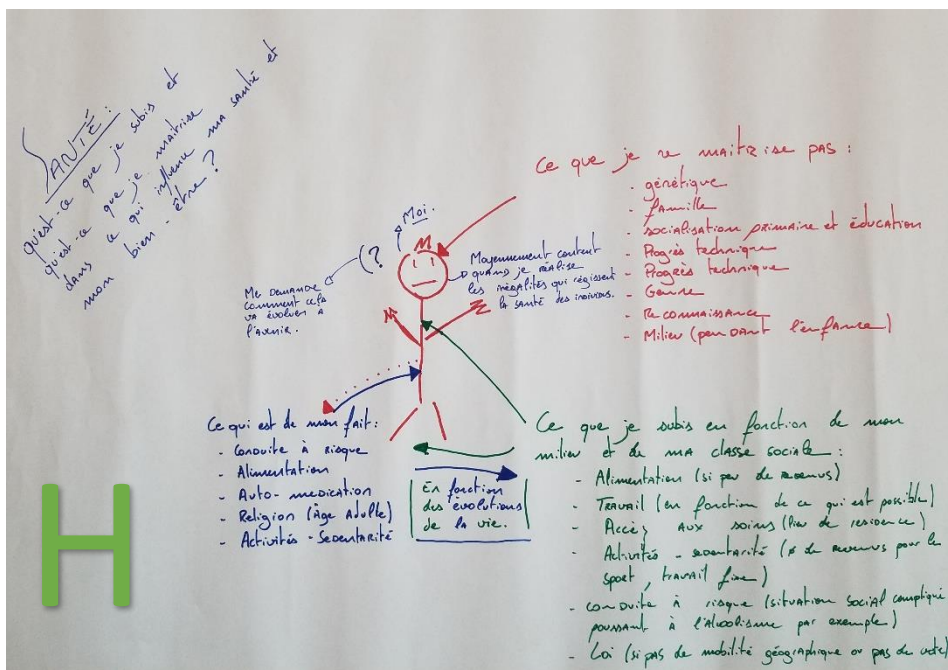 SANTÉ :
qu'est-ce que je subis et
qu'est-ce que je maitrise
dans ce qui influence ma santé et
mon bien-être ?
Moi.
(?
Me demande
comment cela
va évoluer à
l'avenir.
Moyennement content
quand je réalise
les inégalités qui régissent
la santé des individus.
Ce que je ne maitrise pas :
- génétique
- famille
- socialisation primaire et éducation
- Progrès technique
- Progrès technique
- Genre
- Reconnaissance
- Milieu (pendant l'enfance)
Ce qui est de mon fait :
- Conduite à risque
- Alimentation
- Auto-medication
- Religion (Âge Adulte)
- Activités - Sedentarité
En fonction
des évolutions
de la vie.
Ce que je subis en fonction de mon
milieu et de ma classe sociale :
- Alimentation (si peu de revenus)
- Travail (en fonction de ce qui est possible)
- Accès aux soins (lieu de residence)
- Activités - sedentarité (de revenus pour le
sport, travail fixe)
- conduite à risque (situation social compliqué
poussant à l'alcoolisme par exemple)
- Loi (si pas de mobilité géographique ou pas de vote)
H